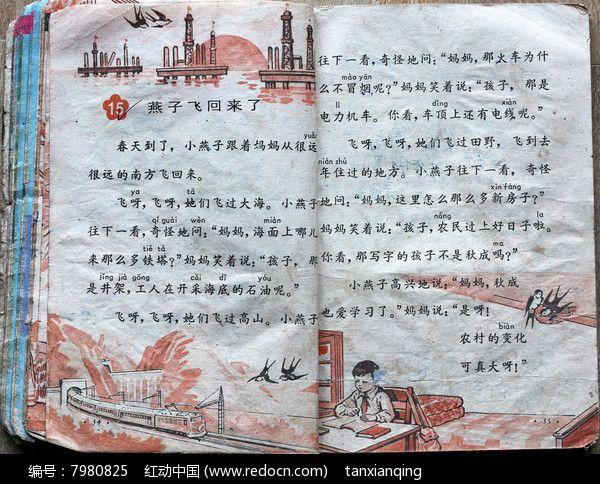 15 燕子飞回来了
yuǎ
春天到了，小燕子跟着妈妈从很远
很远的南方飞回来。
ya tā
飞呀，飞呀，她们飞过大海。小燕子
qí guài wèn miàn
往下一看，奇怪地问：“妈妈，海面上哪儿
tiě tǎ
来那么多铁塔？”妈妈笑着说：“孩子，那
jǐng jià gōng cǎi dǐ yóu
是井架，工人在开采海底的石油呢。”
飞呀，飞呀，她们飞过高山。小燕子
往下一看，奇怪地问：“妈妈，那火车为什
mào yān
么不冒烟呢？”妈妈笑着说：“孩子，那是
lì dǐng xiàn
电力机车。你看，车顶上还有电线呢。”
飞呀，飞呀，她们飞过田野，飞到去
nián zhù
年住过的地方。小燕子往下一看，奇怪
xīn fáng
地问：“妈妈，这里怎么那么多新房子？”
nóng la
妈妈笑着说：“孩子，农民过上好日子啦。
ma
你看，那写字的孩子不是秋成吗？”
小燕子高兴地说：“妈妈，秋成
也爱学习了。”妈妈说：“是呀！
biàn
农村的变化
可真大呀！”
编号：7980825 红动中国 (www.redocn.com) tanxianqing